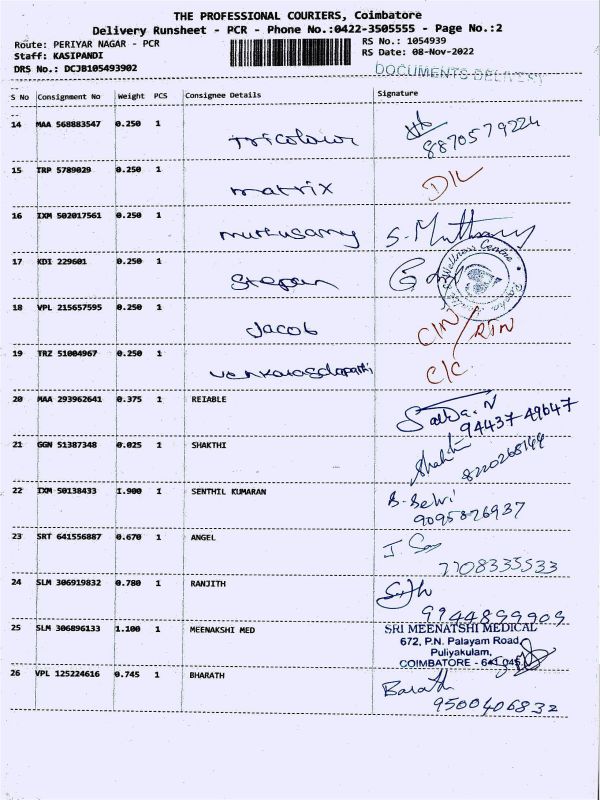 THE PROFESSIONAL COURIERS, Coimbatore
Delivery Runsheet - PCR - Phone No.:0422-3505555 - Page No.:2
Route: PERIYAR NAGAR - PCR
Staff: KASIPANDI
DRS No.: DCJB105493902
RS No.: 1054939
RS Date: 08-Nov-2022
DOCUMENTS DELIVERY
S No Consignment No Weight PCS Consignee Details Signature
14 MAA 568883547 0.250 1 Tricolour 8870579224
15 TRP 5789029 0.250 1 matrix D/L
16 IXM 502017561 0.250 1 muttusamy S. Muthusamy
17 KDI 229601 0.250 1 Stepan
Wellness Centre
18 VPL 215657595 0.250 1 Jacob C/N / RTN
19 TRZ 51004967 0.250 1 C/C
20 MAA 293962641 0.375 1 REIABLE
94437 49647
21 GGN 51387348 0.025 1 SHAKTHI Shakthi
8220268144
22 IXM 50138433 1.900 1 SENTHIL KUMARAN B. Selvi
9095876937
23 SRT 641556887 0.670 1 ANGEL
7708335533
24 SLM 306919832 0.780 1 RANJITH
9944899909
25 SLM 306896133 1.100 1 MEENAKSHI MED SRI MEENATSHI MEDICAL
672, P.N. Palayam Road,
Puliyakulam,
COIMBATORE - 641 045.
26 VPL 125224616 0.745 1 BHARATH Barath
9500406832